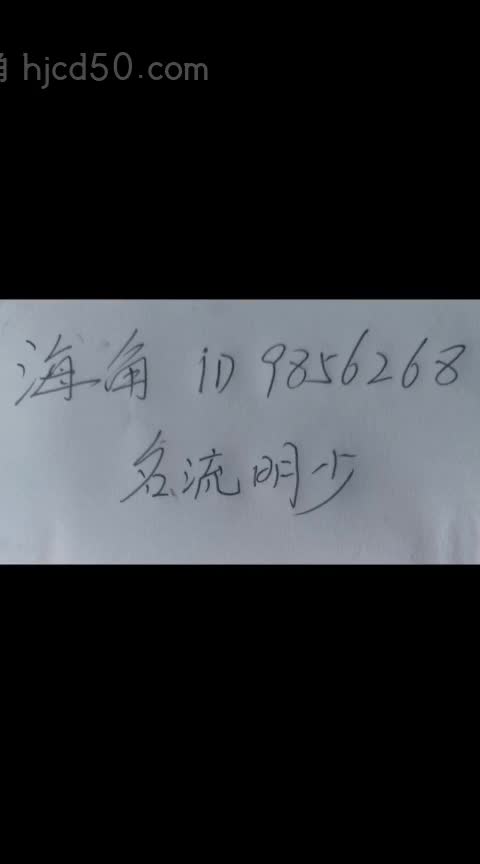 角 hjcd50.com
海角 iD 9856268
名流明少